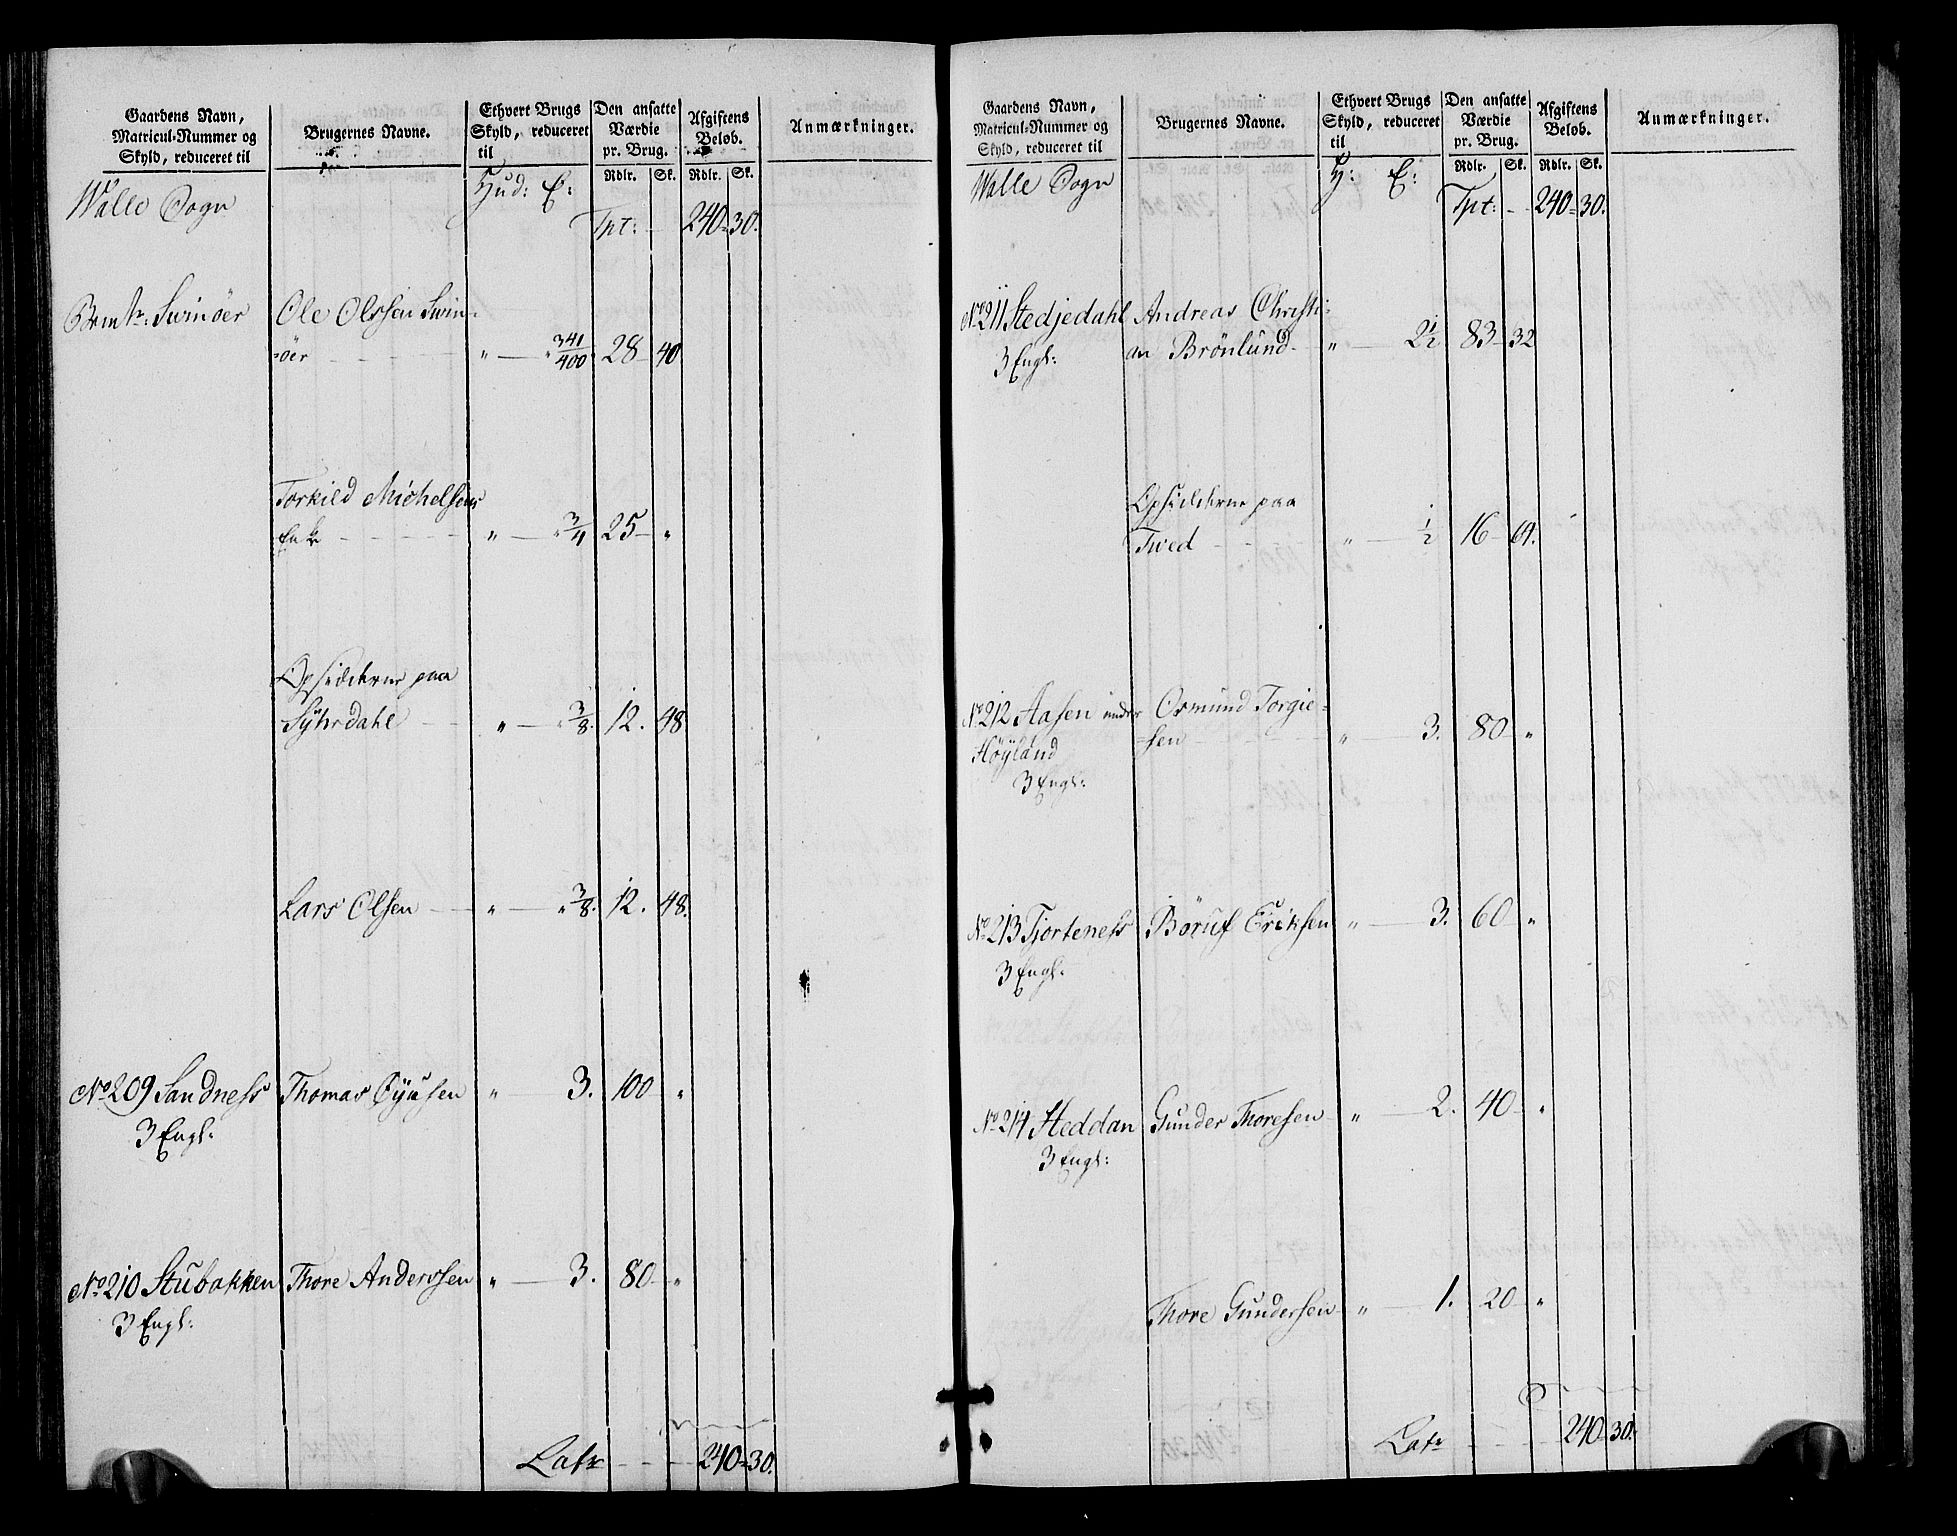 Gaardens Navn,
Matricul-Nummer og
Skyld, reduceret til
Brugernes Navne.
Ethvert Brugs
Skyld, reduceret
til
Den ansatte
Værdie
pr. Brug.
Rdlr. Sk.
Afgiftens
Beløb.
Rdlr. Sk.
Anmærkninger.
Walle Sogn
Hud: E:
Tpt: 240 30.
Svinöer
Ole Olssen Svin-
öer " 341/400 28 40
Torkild Michelsens
Enke " 3/4 25 "
Opsidderne paa
Syhrdahl " 3/8. 12. 48
Lars Olsen " 3/8. 12. 48.
No 209 Sandness Thomas Oyusen " 3. 100 "
3 Engl:
No 210 Stubakken Thore Anderssen " 3. 80 "
3 Engl:
Latr 240 30.
Gaardens Navn,
Matricul-Nummer og
Skyld, reduceret til
Brugernes Navne.
Ethvert Brugs
Skyld, reduceret
til
Den ansatte
Værdie
pr. Brug.
Rdlr. Sk.
Afgiftens
Beløb.
Rdlr. Sk.
Anmærkninger.
Walle Sogn
H: E:
Tpt: 240 30.
No 211 Stedjedahl Andreas Christi-
an Brönlund " 2 1/2 83 32
3 Engl:
Opsidderne paa
Tved " 1/2 16 64.
No 212 Aasen under Osmund Torgie-
Höyland sen " 3. 80 "
3 Engl:
No 213 Tjorteness Böruf Eriksen " 3. 60 "
3 Engl:
No 214 Heddan Gunder Thoresen " 2. 40 "
3 Engl:
Thore Gundersen " 1. 20 "
Latr 240 30.